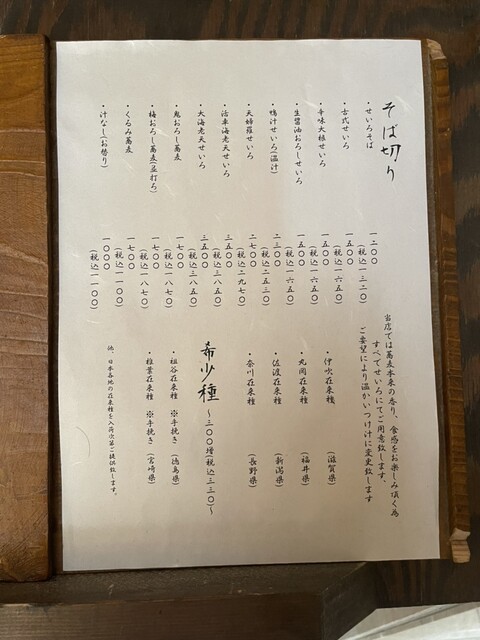 そば切り
・せいろそば 一二〇〇
(税込一三二〇)
・古式せいろ 一五〇〇
(税込一六五〇)
・辛味大根せいろ 一五〇〇
(税込一六五〇)
・生醤油おろしせいろ 一五〇〇
(税込一六五〇)
・鴨汁せいろ(温汁) 二三〇〇
(税込二五三〇)
・天婦羅せいろ 二七〇〇
(税込二九七〇)
・活車海老天せいろ 三五〇〇
(税込三八五〇)
・大海老天せいろ 三五〇〇
(税込三八五〇)
・鬼おろし蕎麦 一七〇〇
(税込一八七〇)
・梅おろし蕎麦(昼打ち) 一七〇〇
(税込一八七〇)
・くるみ蕎麦 一七〇〇
(税込一一〇〇)
・汁なし(お替り) 一〇〇〇
(税込一一〇〇)
当店では蕎麦本来の香り、食感をお楽しみ頂く為
すべてせいろにてご用意致します。
ご要望により温かいつけ汁に変更致します
・伊吹在来種 (滋賀県)
・丸岡在来種 (福井県)
・佐渡在来種 (新潟県)
・奈川在来種 (長野県)
希少種 〜三〇〇増(税込三三〇)〜
・祖谷在来種 ※手挽き (徳島県)
・椎葉在来種 ※手挽き (宮崎県)
他、日本各地の在来種を入荷次第ご提供致します。